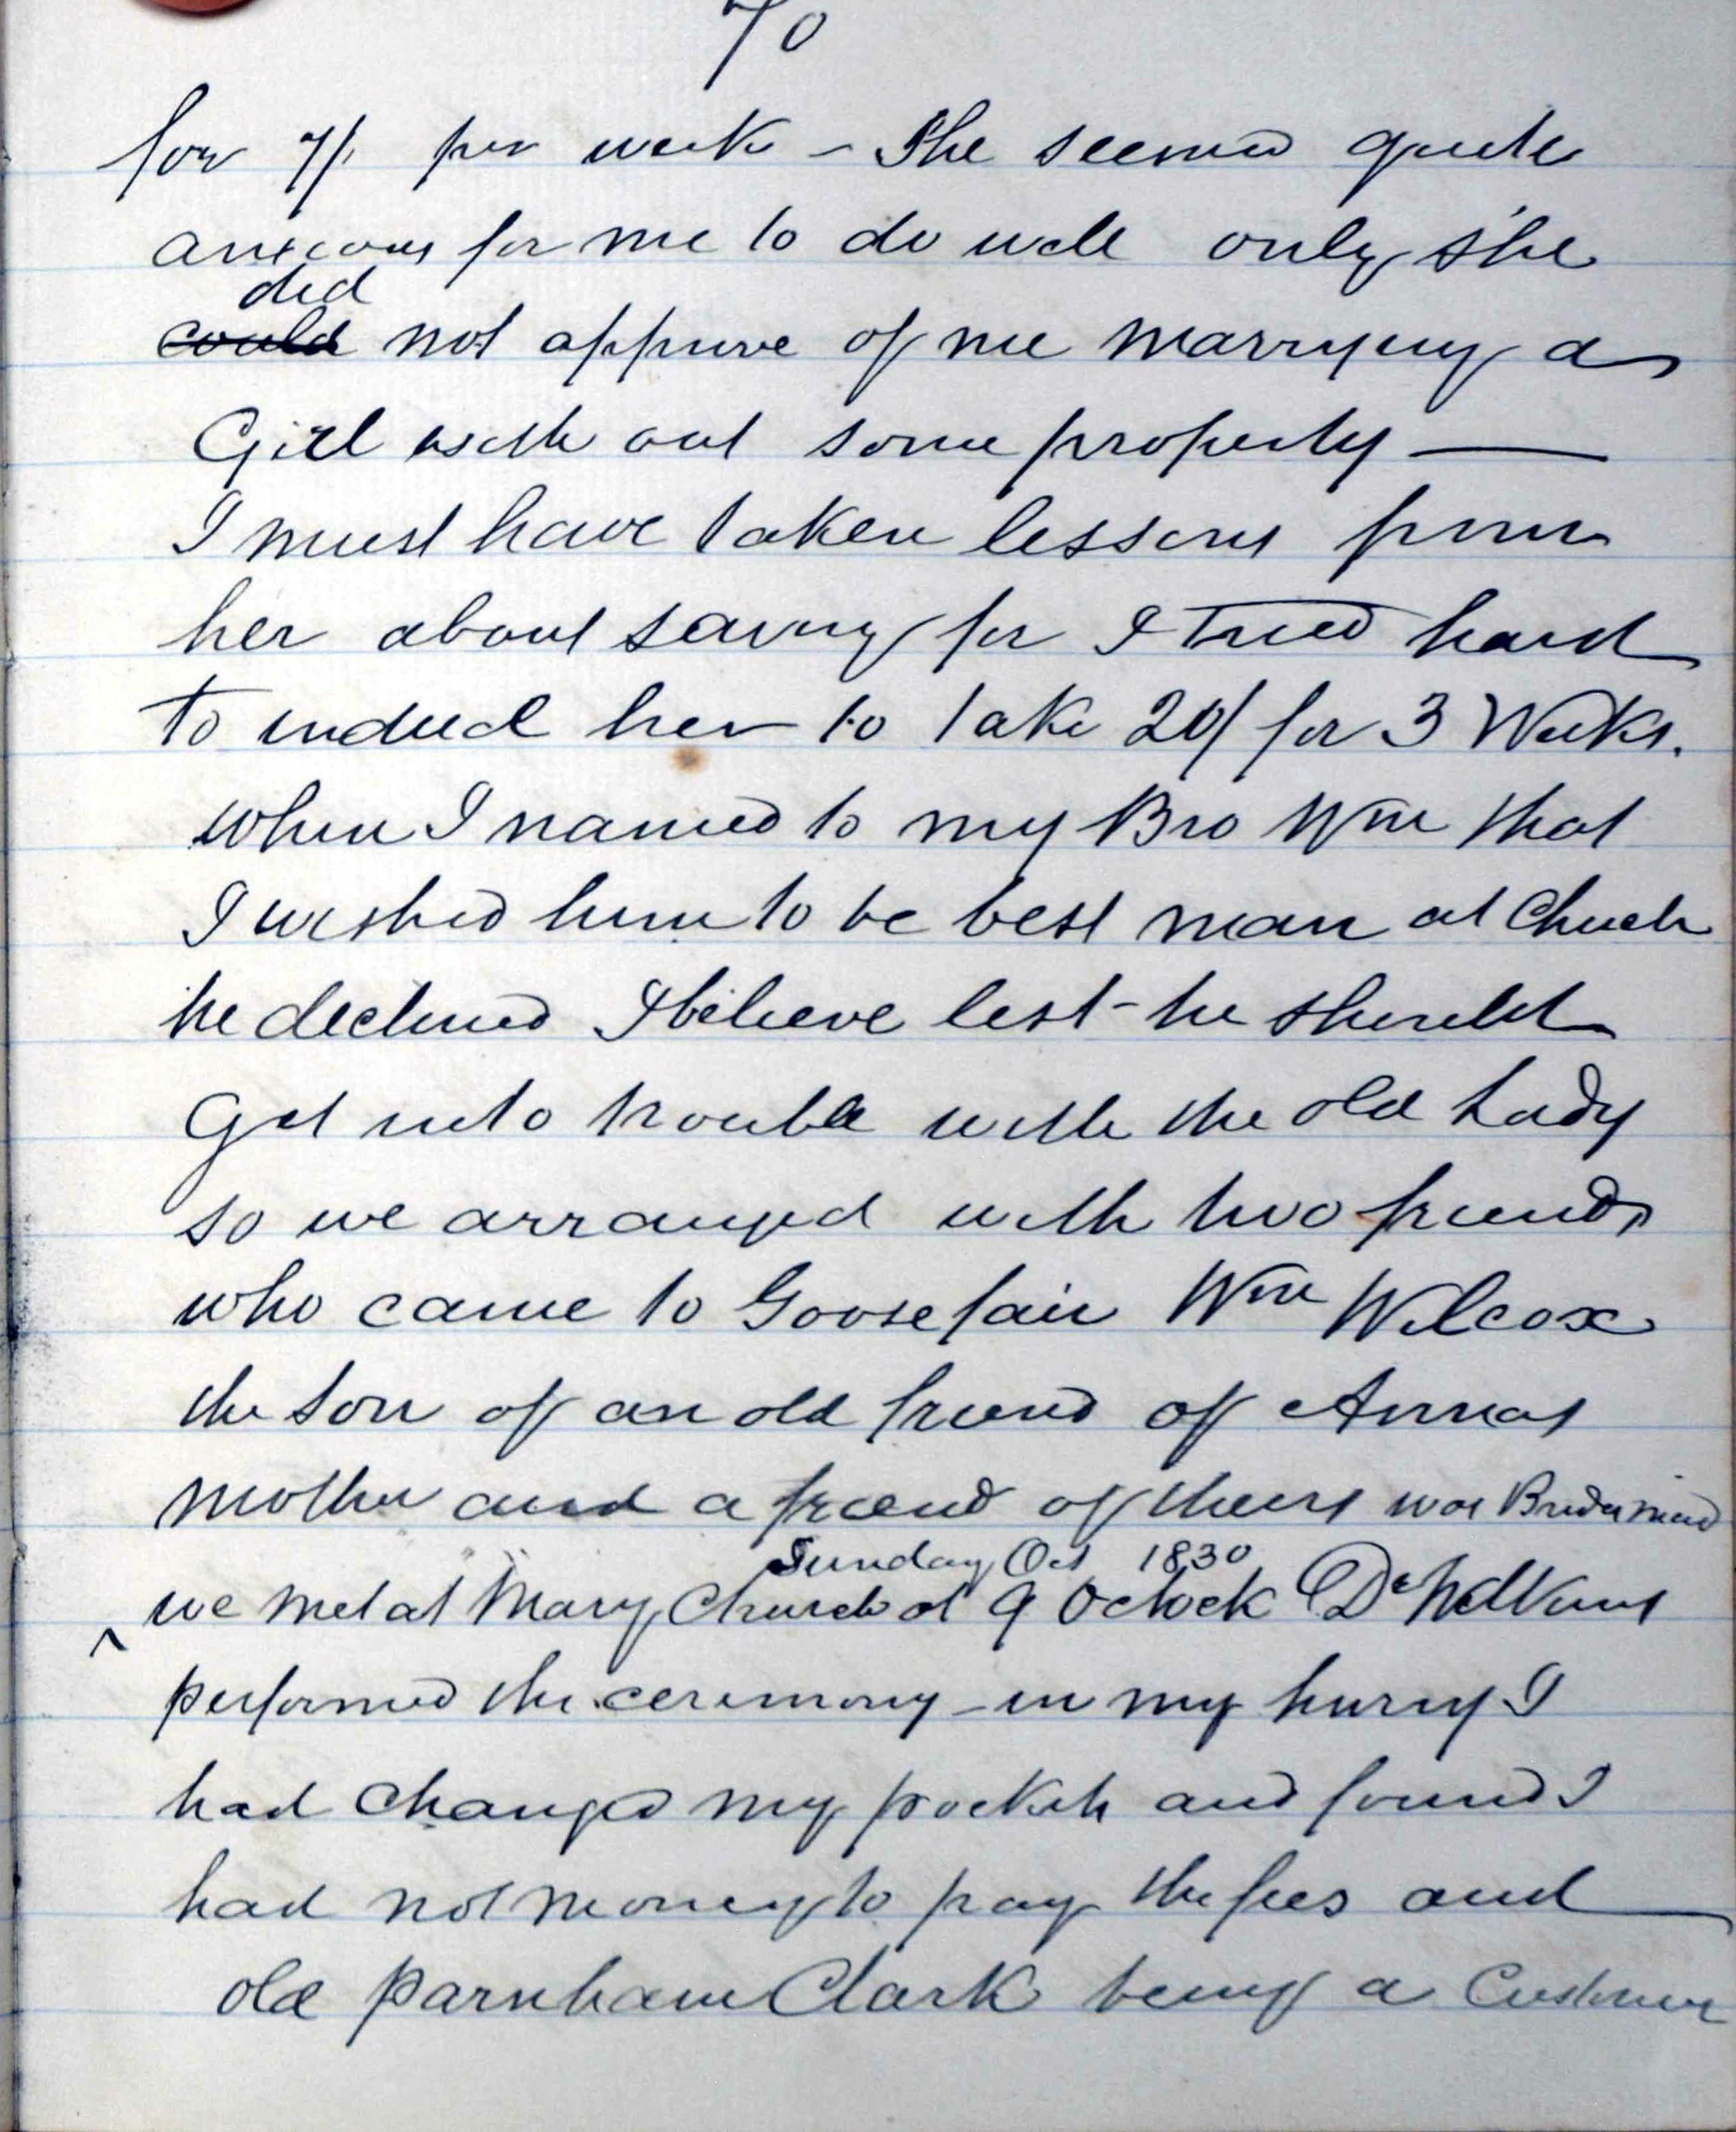 70
for 7/. per week - She seemed quite
anxious for me to do well only she
did
could not approve of me marrying a
Girl with out some property —
I must have taken lessons from
her about saving for I tried hard
to induce her to take 20/ for 3 Weeks.
when I named to my Bro Wm that
I wished him to be best man at Church
he declined I believe lest - he should
Get into trouble with the old Lady
so we arranged with two friends
who came to Goose fair Wm Wilcox
the son of an old friend of Annas
mother and a friend of theirs was Bridesmaid
Sunday Oct 1830
^ we met at Mary Church at 9 Oclock Dr Wilkins
performed the ceremony - in my hurry I
had changed my pockets and found I
had not money to pay the fees and
old Parnham Clark being a Customer